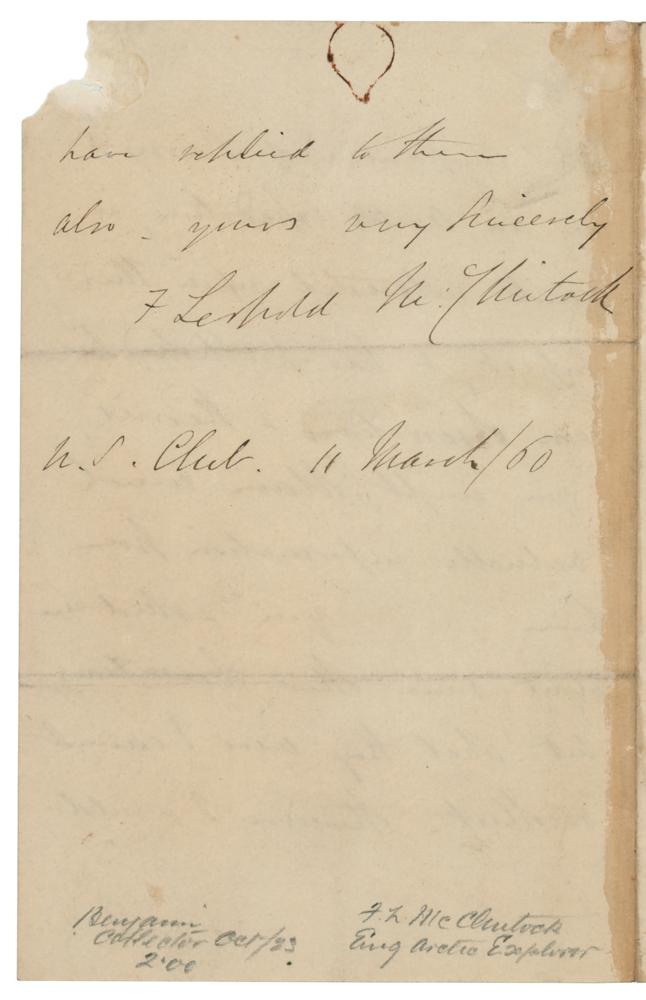 have replied to them
also - yours very sincerely
F Leopold Mc.Clintock
U.S. Club. 11 March/60
Benjamin
Collector Oct/23
2.00
F. L McClintock
Eng Arctic Explorer